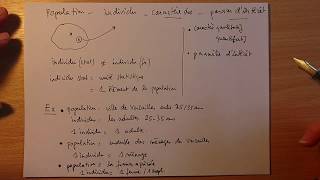 Population - individu - caractère - paramètre d'intérêt
• caractère qualitatif
quantitatif
• paramètre d'intérêt
individu (stat) ≠ individu (fr)
individu stat = unité statistique
= 1 élément de la population
Ex • population : ville de Versailles 25/35 ans
individu : les adultes 25-35 ans
1 individu = 1 adulte
• population : ensemble des ménages de Versailles
1 individu = 1 ménage
• population =
1 individu = 1 ferme